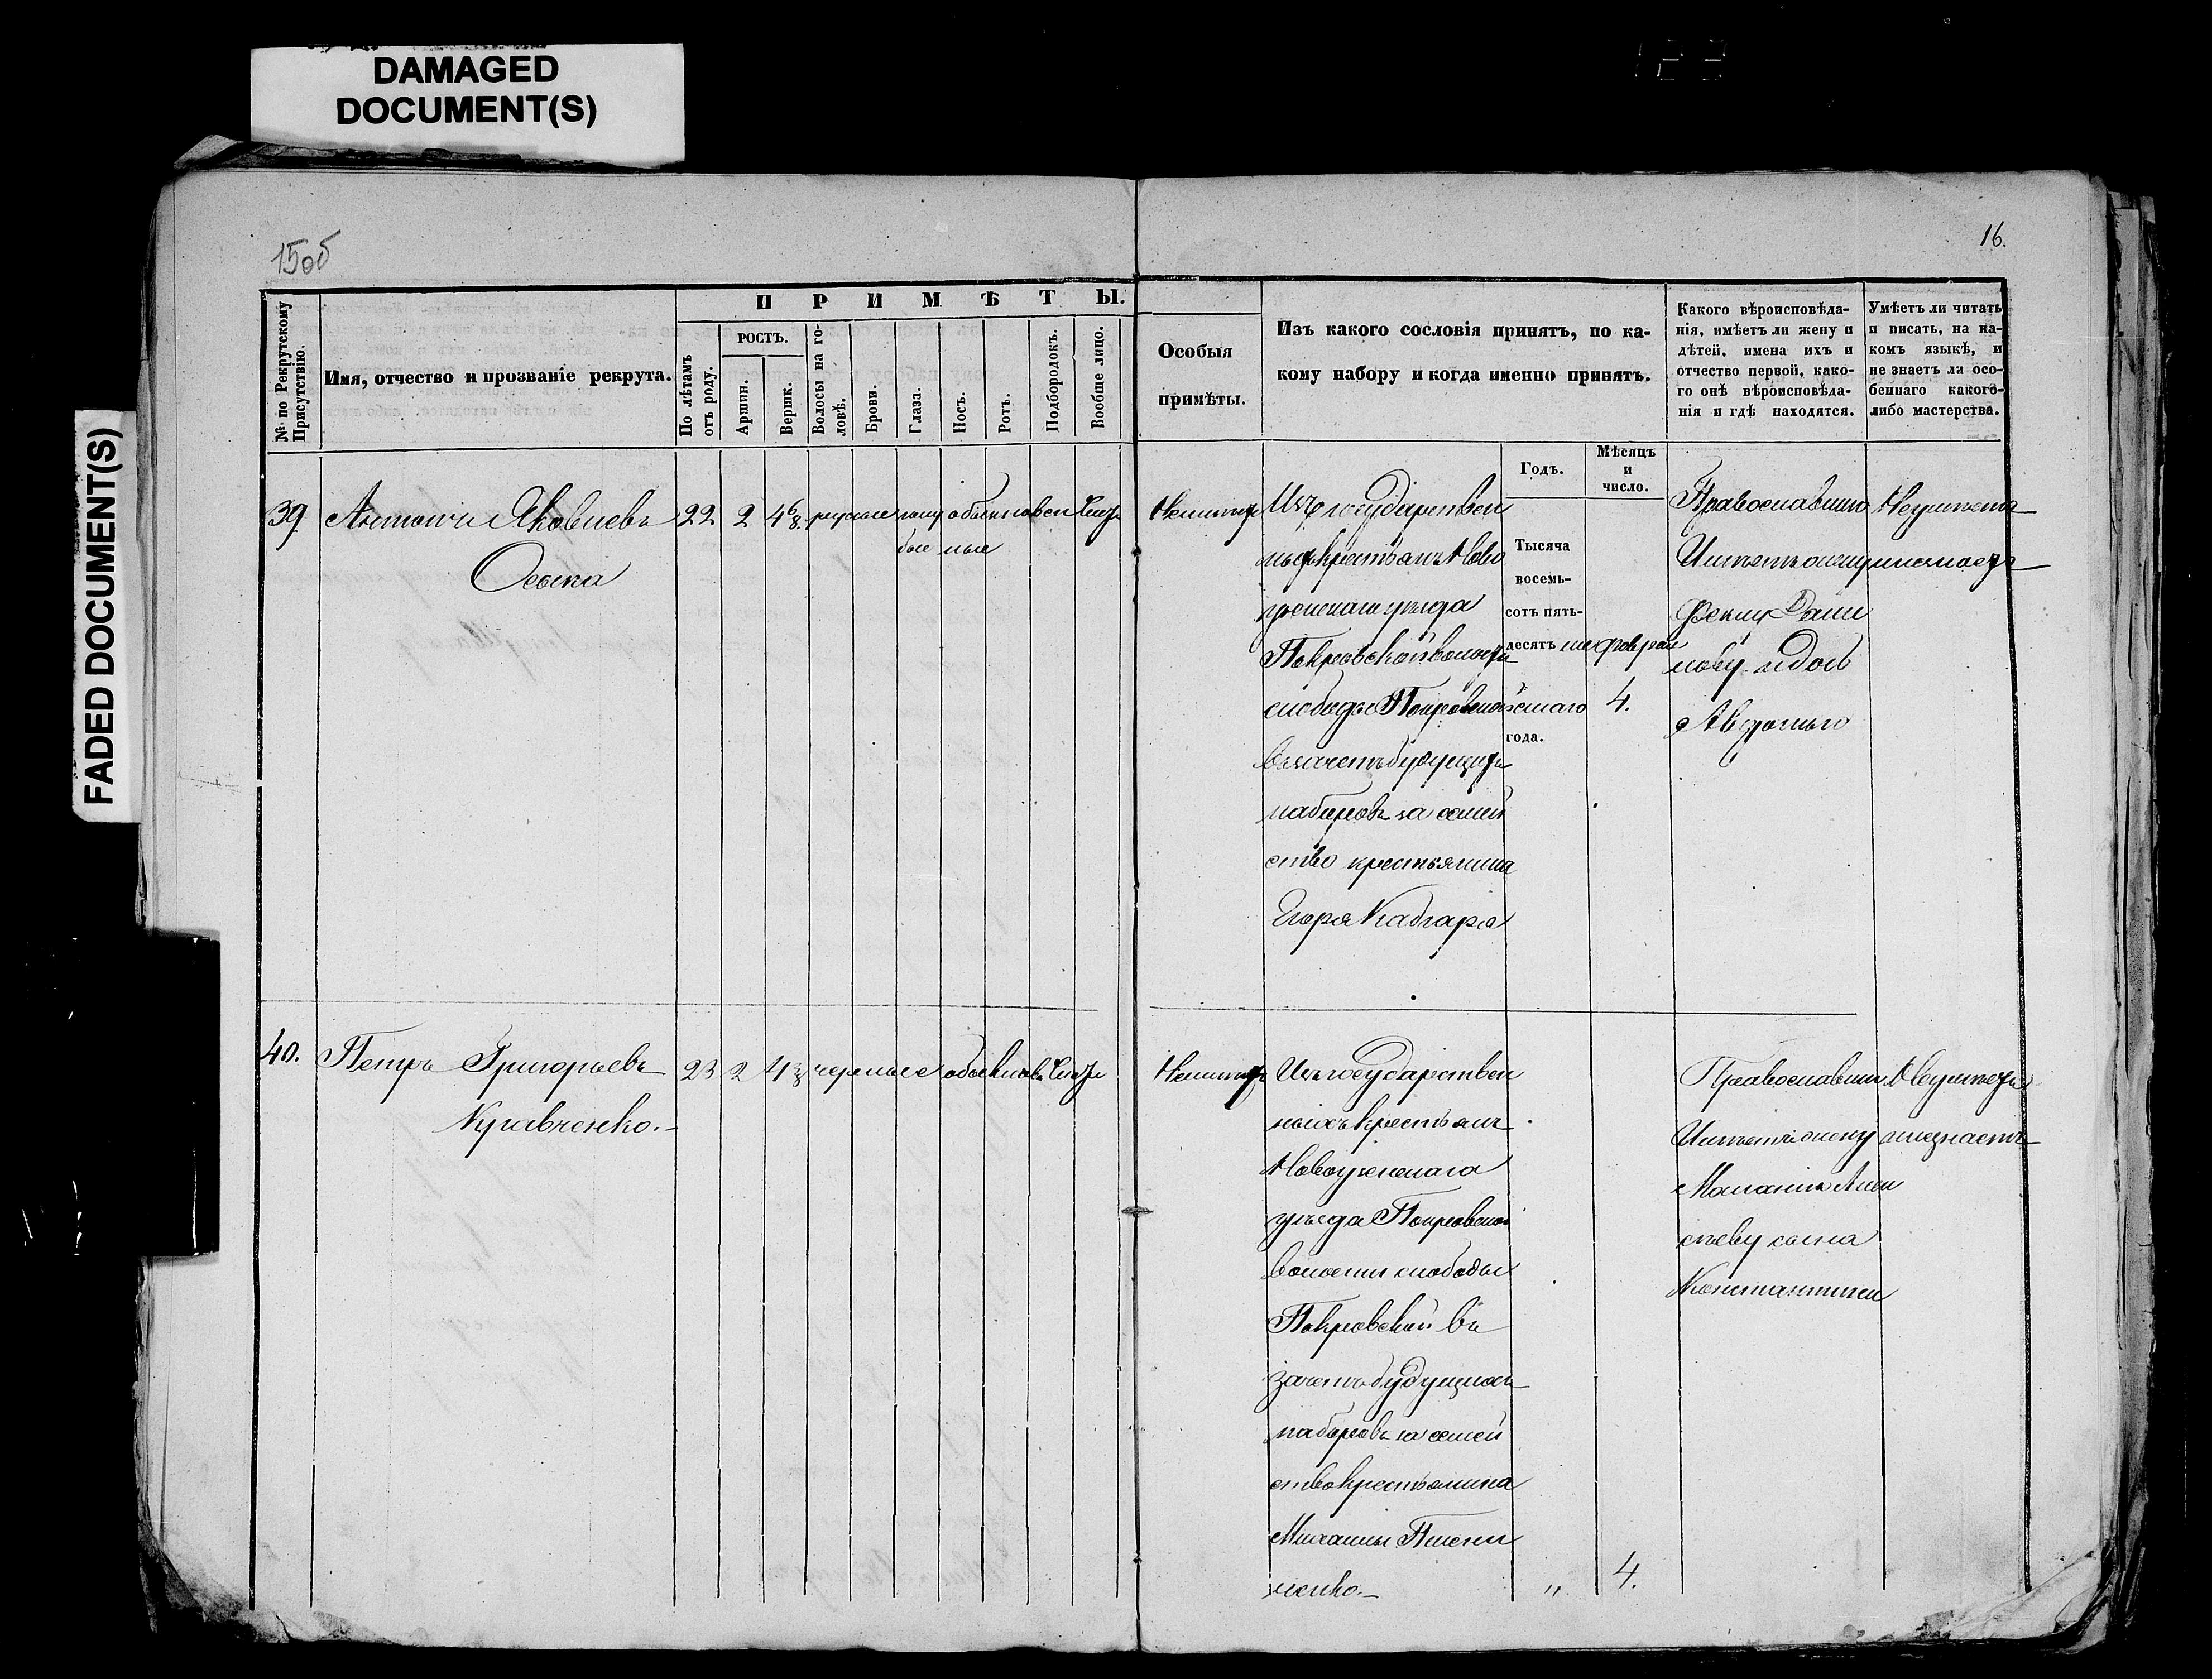 DAMAGED
DOCUMENT(S)
FADED DOCUMENT(S)
15об
16.
№ по Рекрутскому
Присутствію.
Имя, отчество и прозваніе рекрута.
ПРИМѢТЫ.
По лѣтамъ
отъ роду.
РОСТЪ.
Аршин.
Вершк.
Волосы на го-
ловѣ.
Брови.
Глаза.
Носъ.
Ротъ.
Подбородокъ.
Вообще лицо.
Особыя
примѣты.
Изъ какого сословія принятъ, по ка-
кому набору и когда именно принятъ.
Годъ.
Мѣсяцъ
и
число.
Какого вѣроисповѣда-
нія, имѣетъ ли жену и
дѣтей, имена ихъ и
отчество первой, како-
го онѣ вѣроисповѣда-
нія и гдѣ находятся.
Умѣетъ ли читать
и писать, на ка-
комъ языкѣ, и
не знаетъ ли осо-
беннаго какого-
либо мастерства.
39
Антонъ Яковлевъ
Осыка
22 2 4 6/8 русые голу обыкновен чист
бые ные
Неимѣетъ
Изъ государствен
ныхъ крестьянъ Ново
узенскаго уѣзда
Покровской волости
слободы Покровской
въ зачетъ будущихъ
наборовъ за семей
ство крестьянина
Егора
Тысяча
восемь-
сотъ пять-
десятъ ше
стаго
года.
февраля
4.
Православнаго
Имѣетъ жену
Феклу Дани
лову и дочь
Авдотью
Неумѣетъ
и незнаетъ
40.
Петръ Григорьевъ
Кравченко.-
23 2 4 3/8 черные обыкнов чист
Неимѣетъ
Изъ государствен
ныхъ крестьянъ
Новоузенскаго
уѣзда Покровской
волости слободы
Покровской въ
зачетъ будущихъ
наборовъ за семей
ство крестьянина
Михаилы
ченко.-
„
4.
Православнаго
Имѣетъ жену
Маланью
сѣеву сына
Константина
Неумѣетъ
и незнаетъ